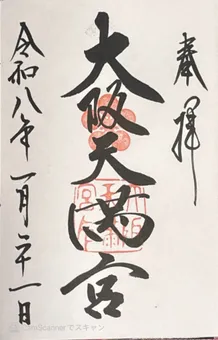 奉拝
大阪天満宮
令和八年一月二十一日
でスキャン